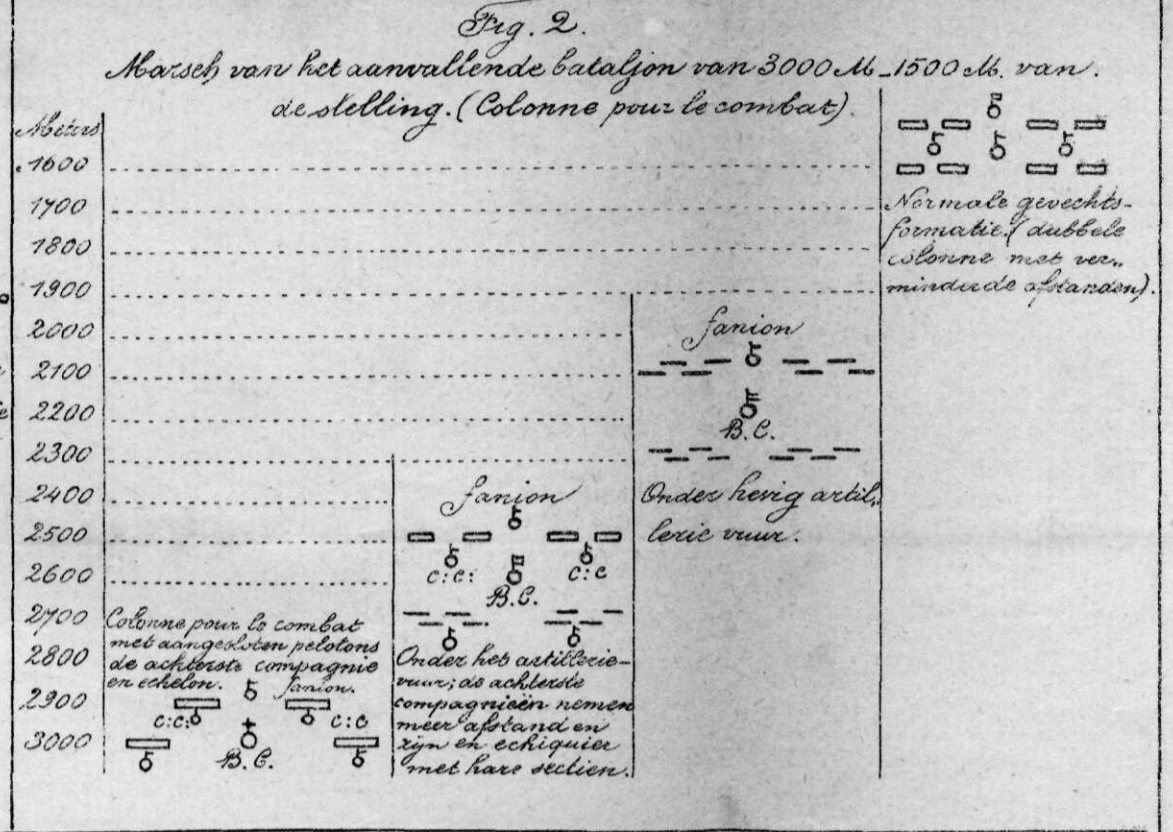 Fig. 2.
Marsch van het aanvallende bataljon van 3000 M - 1500 M. van
de stelling. (Colonne pour le combat).
Meters
1600
1700
1800
1900
2000
2100
2200
2300
2400
2500
2600
2700
2800
2900
3000
Colonne pour le combat
met aangesloten pelotons
de achterste compagnie
en echelon.
fanion.
C:C:
C:C
B.C.
fanion
C:C:
C:C
B.C.
Onder het artillerie-
vuur; de achterste
compagnieën nemen
meer afstand en
zijn en echiquier
met hare sectien.
fanion
B.C.
Onder hevig artil„
lerie vuur.
Normale gevechts-
formatie. (dubbele
colonne met ver„
minderde afstanden).